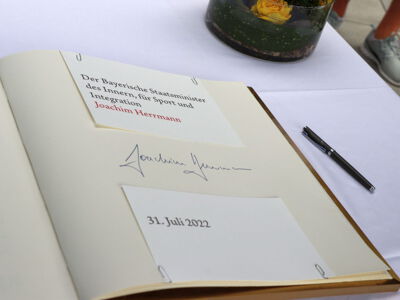 Der Bayerische Staatsminister
des Innern, für Sport und
Integration
Joachim Herrmann
Joachim Herrmann
31. Juli 2022